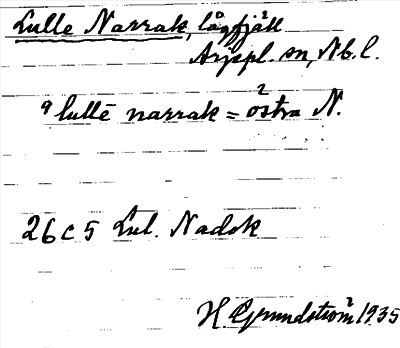 Lulle Narrak, lågfjäll
Arjepl. sn, Nb. l.
lullē narrak = östra N.
26 c 5 Lul. Nadok
H. Grundström 1935